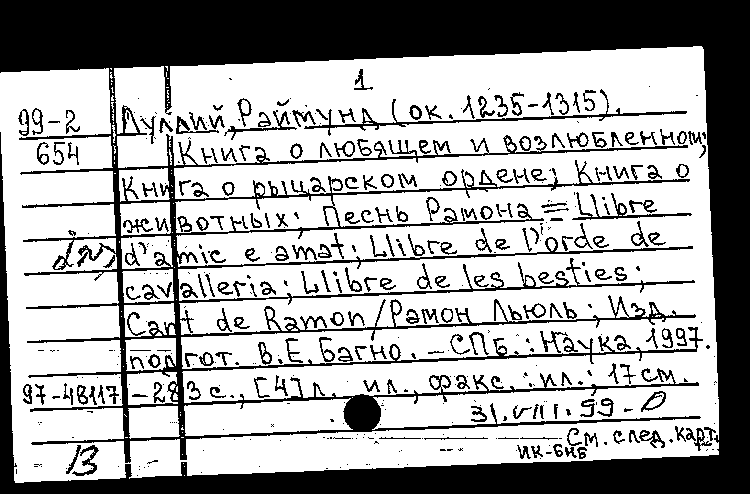 1
99-2 Луллий, Раймунд (ок. 1235-1315).
654 Книга о любящем и возлюбленном;
Книга о рыцарском ордене; Книга о
животных; Песнь Рамона = Llibre
d'amic e amat; Llibre de l'orde de
cavalleria; Llibre de les besties;
Cant de Ramon/Рамон Льюль; Изд.
подгот. В.Е. Багно. – СПб.: Наука, 1997.
97-48117 – 283 с., [4] л. ил., факс. : ил.; 17 см.
31.VIII.99
См. след. карт.
ИК-БНБ
13